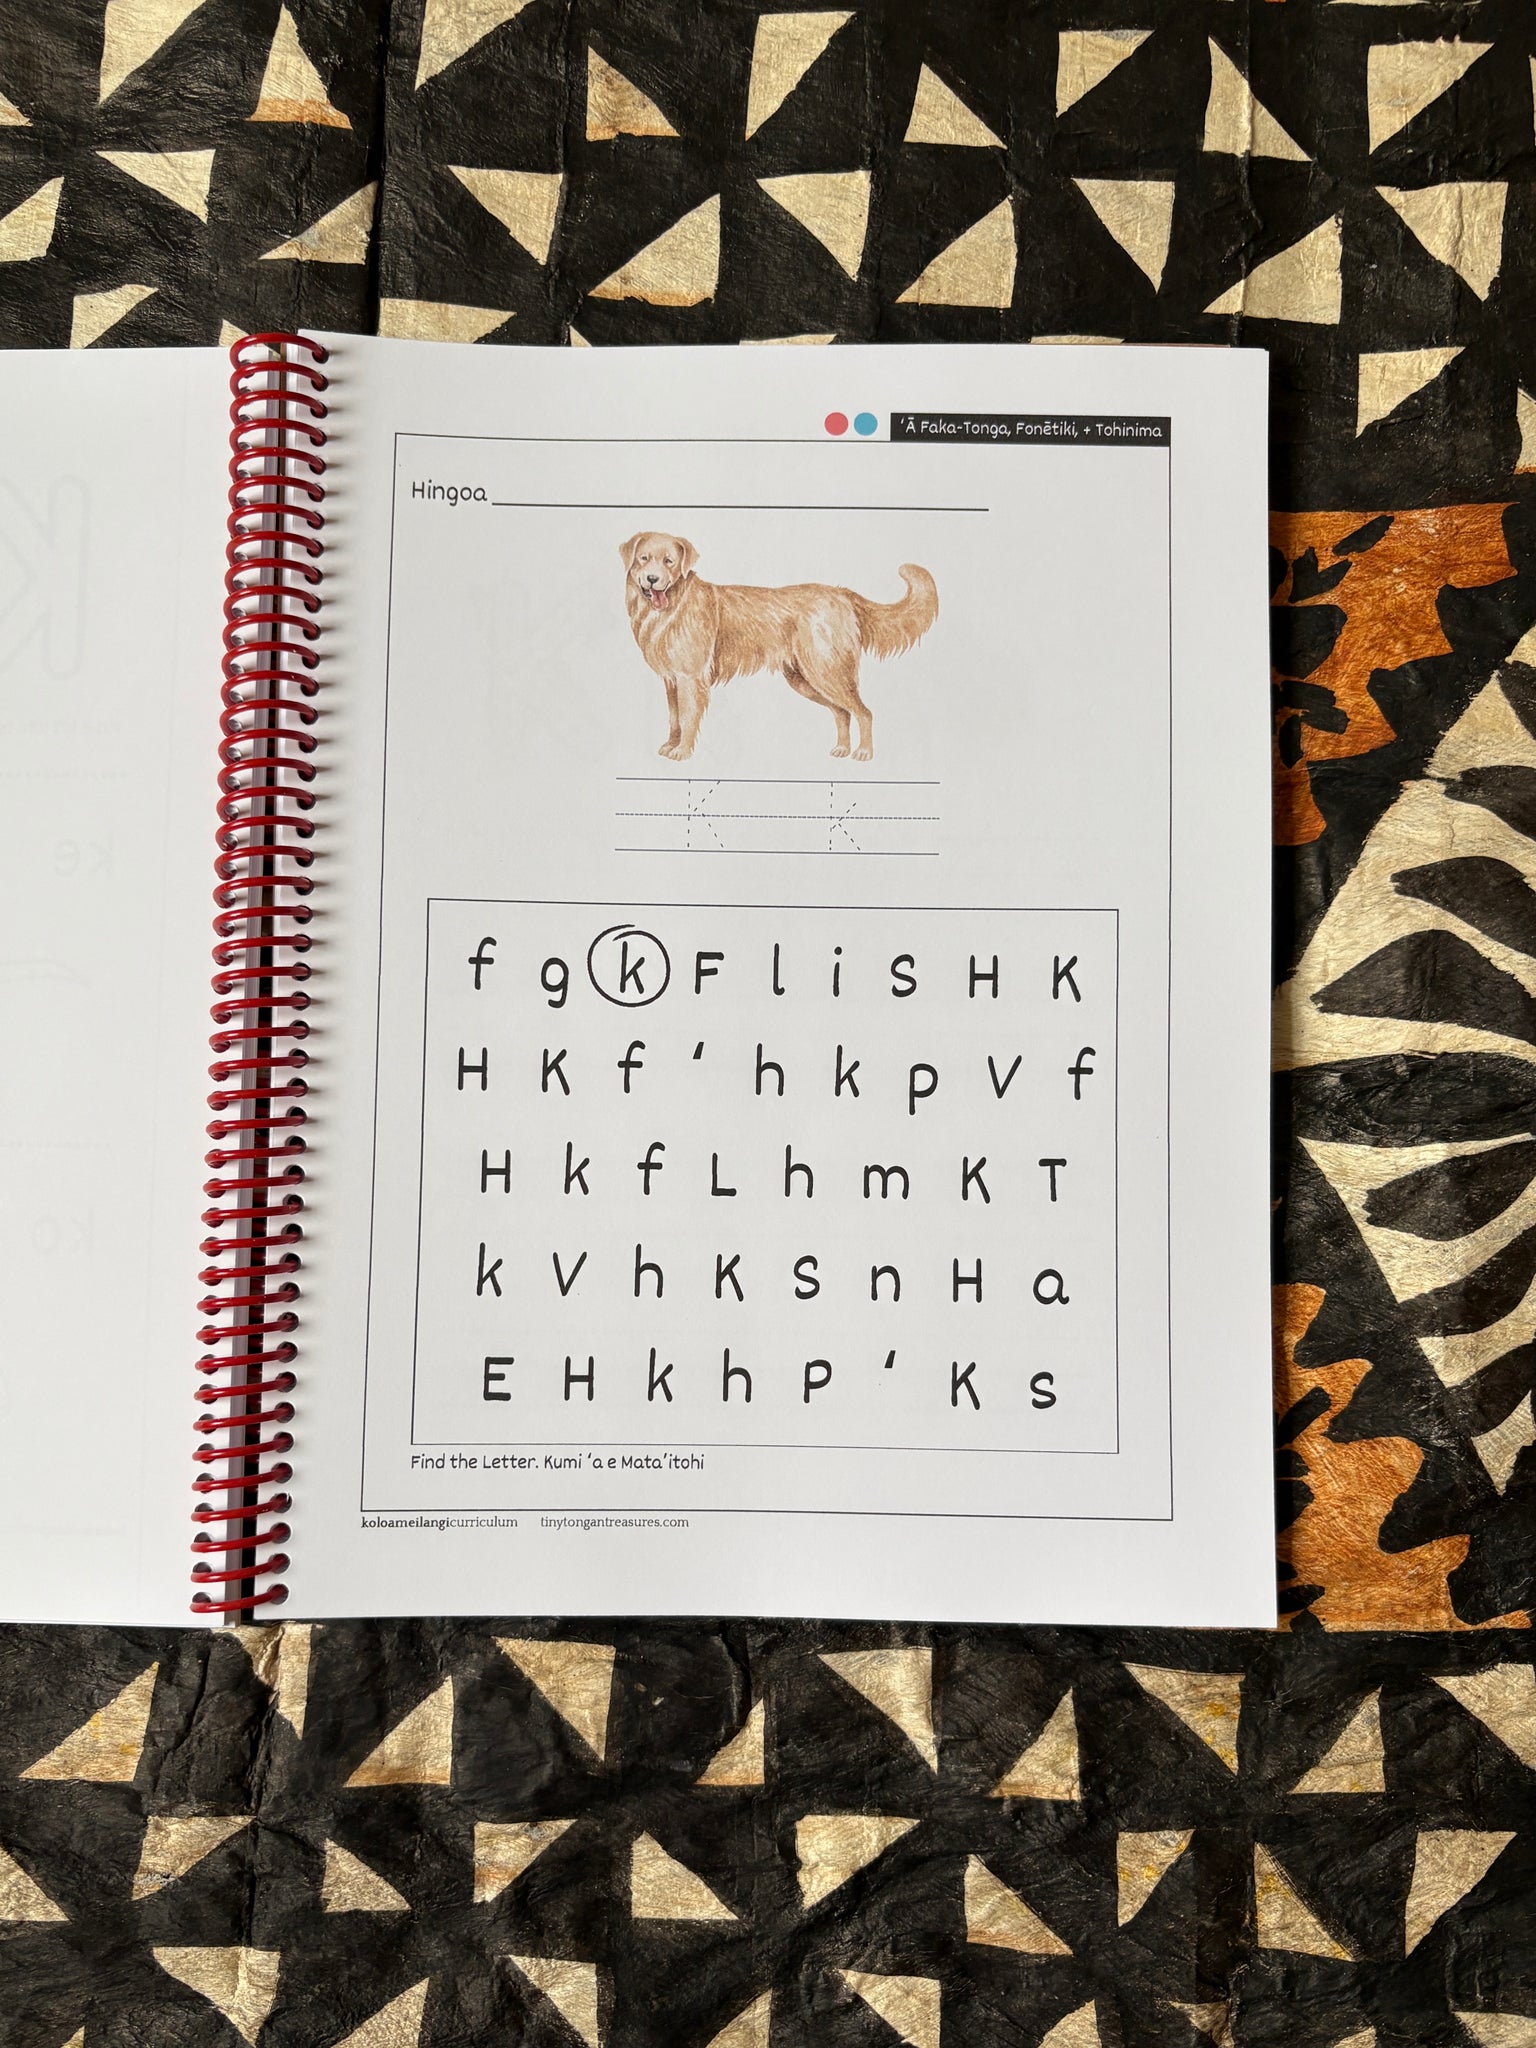 ʻĀ Faka-Tonga, Fonētiki, + Tohinima
Hingoa
K k
f g k F l i S H K
H K f ʻ h k p V f
H k f L h m K T
k V h K S n H a
E H k h P ʻ K s
Find the Letter. Kumi ʻa e Mataʻitohi
koloameilangicurriculum tinytongantreasures.com
K
ke
ko